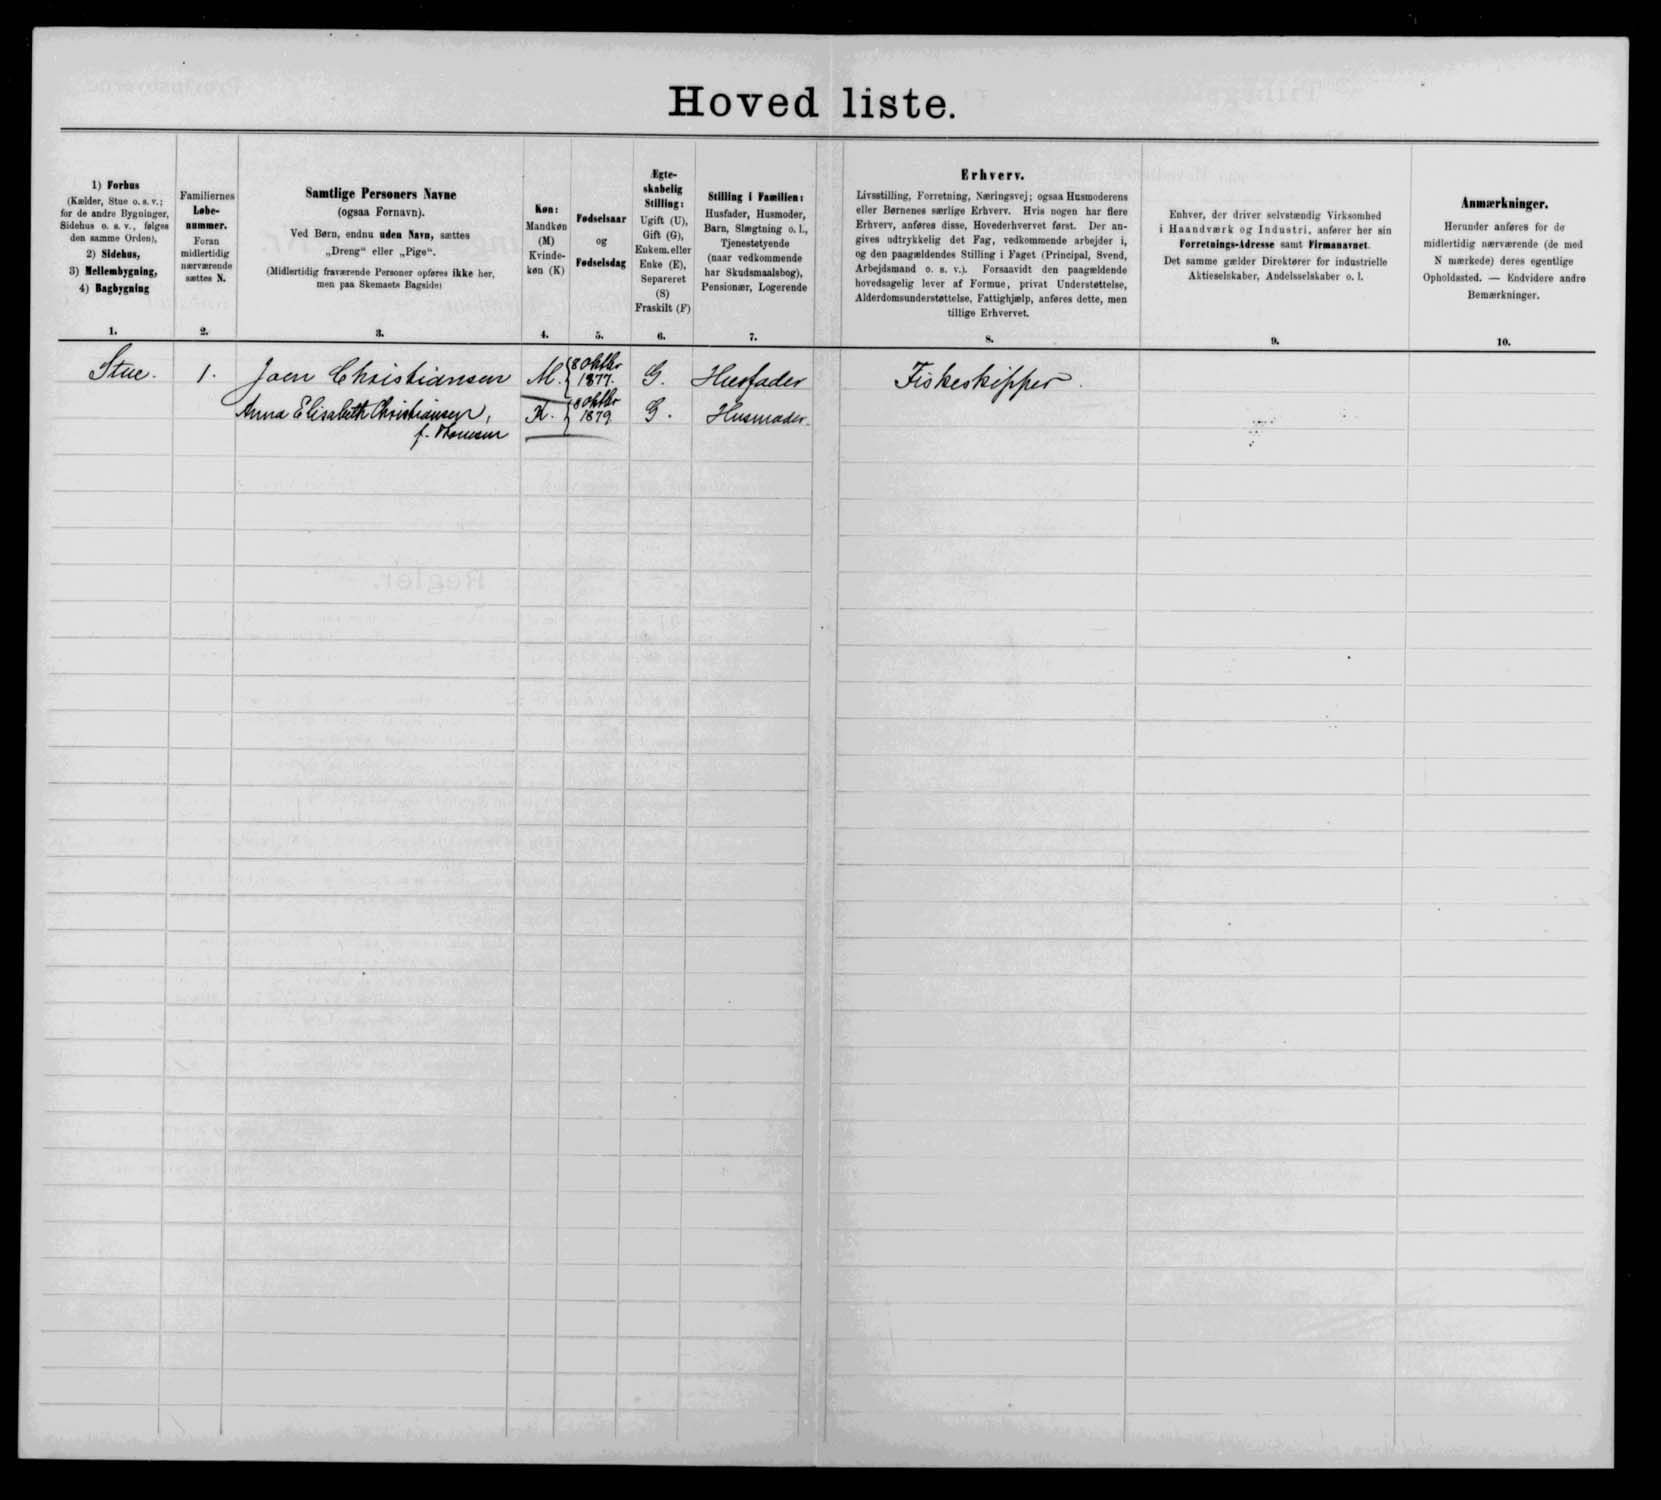 Hoved liste.
1) Forhus
(Kælder, Stue o. s. v.;
for de andre Bygninger,
Sidehus o. s. v., følges
den samme Orden),
2) Sidehus,
3) Mellembygning,
4) Bagbygning
1.
Familiernes
Løbe-
nummer.
Foran
midlertidig
nærværende
sættes N.
2.
Samtlige Personers Navne
(ogsaa Fornavn).
Ved Børn, endnu uden Navn, sættes
„Dreng“ eller „Pige“.
(Midlertidig fraværende Personer opføres ikke her,
men paa Skemaets Bagside)
3.
Køn:
Mandkøn
(M)
Kvinde-
køn (K)
4.
Fødselsaar
og
Fødselsdag
5.
Ægte-
skabelig
Stilling:
Ugift (U),
Gift (G),
Enkem. eller
Enke (E),
Separeret
(S)
Fraskilt (F)
6.
Stilling i Familien:
Husfader, Husmoder,
Barn, Slægtning o. l.,
Tjenestetyende
(naar vedkommende
har Skudsmaalsbog),
Pensionær, Logerende
7.
Erhverv.
Livsstilling, Forretning, Næringsvej; ogsaa Husmoderens
eller Børnenes særlige Erhverv. Hvis nogen har flere
Erhverv, anføres disse, Hovederhvervet først. Der an-
gives udtrykkelig det Fag, vedkommende arbejder i,
og den paagældendes Stilling i Faget (Principal, Svend,
Arbejdsmand o. s. v.). Forsaavidt den paagældende
hovedsagelig lever af Formue, privat Understøttelse,
Alderdomsunderstøttelse, Fattighjælp, anføres dette, men
tillige Erhvervet.
8.
Enhver, der driver selvstændig Virksomhed
i Haandværk og Industri, anfører her sin
Forretnings-Adresse samt Firmanavnet.
Det samme gælder Direktører for industrielle
Aktieselskaber, Andelsselskaber o. l.
9.
Anmærkninger.
Herunder anføres for de
midlertidig nærværende (de med
N mærkede) deres egentlige
Opholdssted. — Endvidere andre
Bemærkninger.
10.
Stue. 1. Joen Christiansen M. 8 Oktbr 1877. G. Husfader Fiskeskipper.
Anna Elisabeth Christiansen, K. 8 Oktbr 1879 G. Husmoder.
f. Thomsen